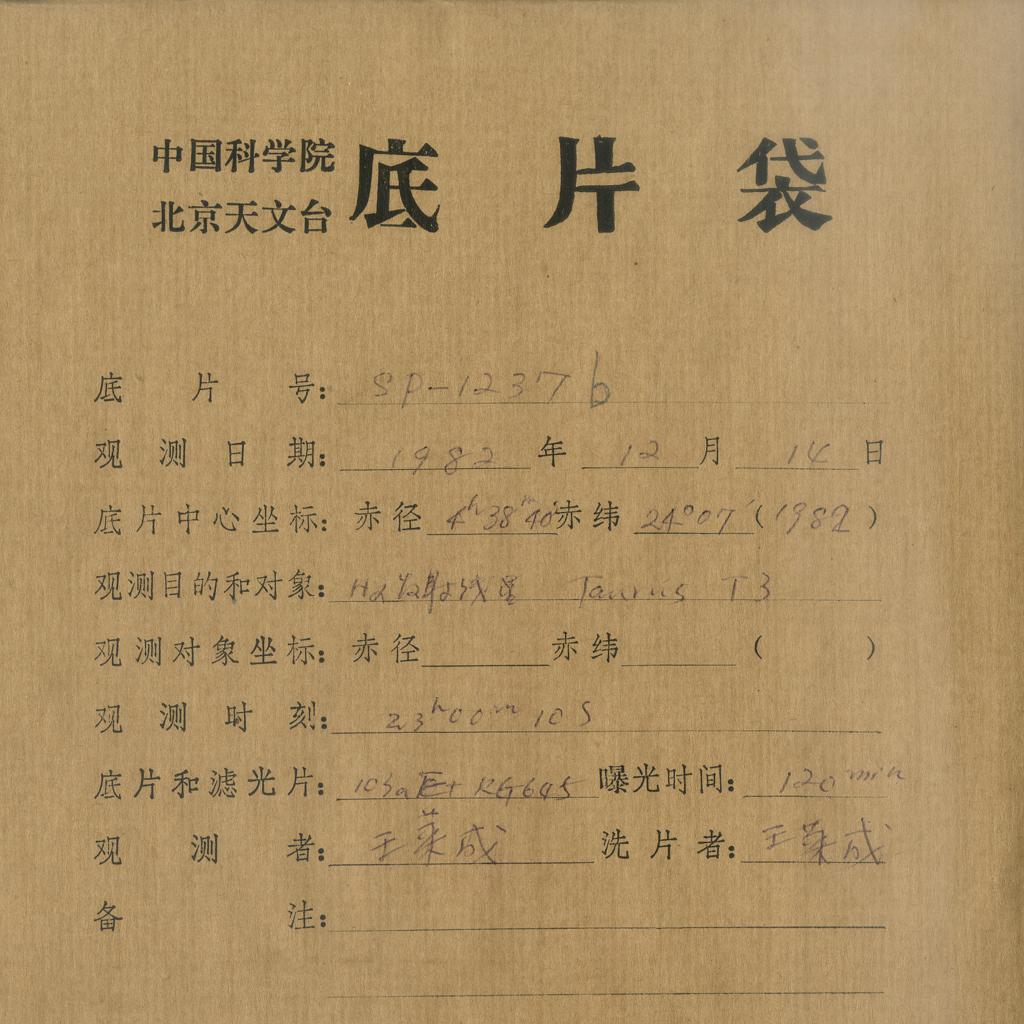 中国科学院
北京天文台 底片袋
底片号: SP-1237b
观测日期: 1982 年 12 月 14 日
底片中心坐标: 赤径 4h38m40s 赤纬 24°07′ (1982)
观测目的和对象: Hα发射线星 Taurus T3
观测对象坐标: 赤径 赤纬 ( )
观测时刻: 23h00m10s
底片和滤光片: 103aE+RG645 曝光时间: 120min
观测者: 王 成 洗片者: 王 成
备注: